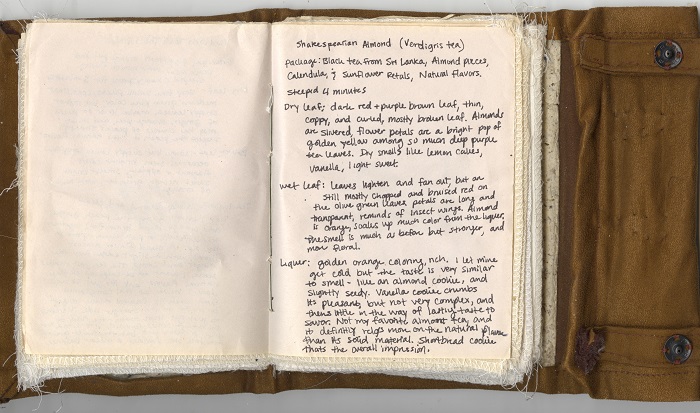 Shakespearian Almond (Verdigris tea)
Package: Black tea from Sri Lanka, Almond pieces,
Calendula, & Sunflower Petals, Natural flavors.
Steepid 4 minutes
Dry Leaf: dark red + purple brown leaf, thin,
coppy, and curled, mostly brown leaf. Almonds
are slivered, flower petals are a bright pop of
golden yellow among so much deep purple
tea leaves. Dry smells like lemon cakes,
vanilla, light sweet.
Wet Leaf: Leaves lighten and fan out, but are
still mostly chopped and bruised red on
the olive green leaves. Petals are long and
transparant, reminds of insect wings. Almond
is orange, soaks up much color from the liquer,
the smell is much as before but stronger, and
more floral.
Liquer: golden orange coloring, rich. I let mine
get cold but the taste is very similar
to smell - like an almond cookie, and
slightly seedy. Vanilla cookie crumbs
Its pleasant, but not very complex, and
theres little in the way of lasting taste to
savor. Not my favorite almond tea, and
it definitly relys more on the natural flavor
than its solid material. Shortbread cookie
thats the overall impression.